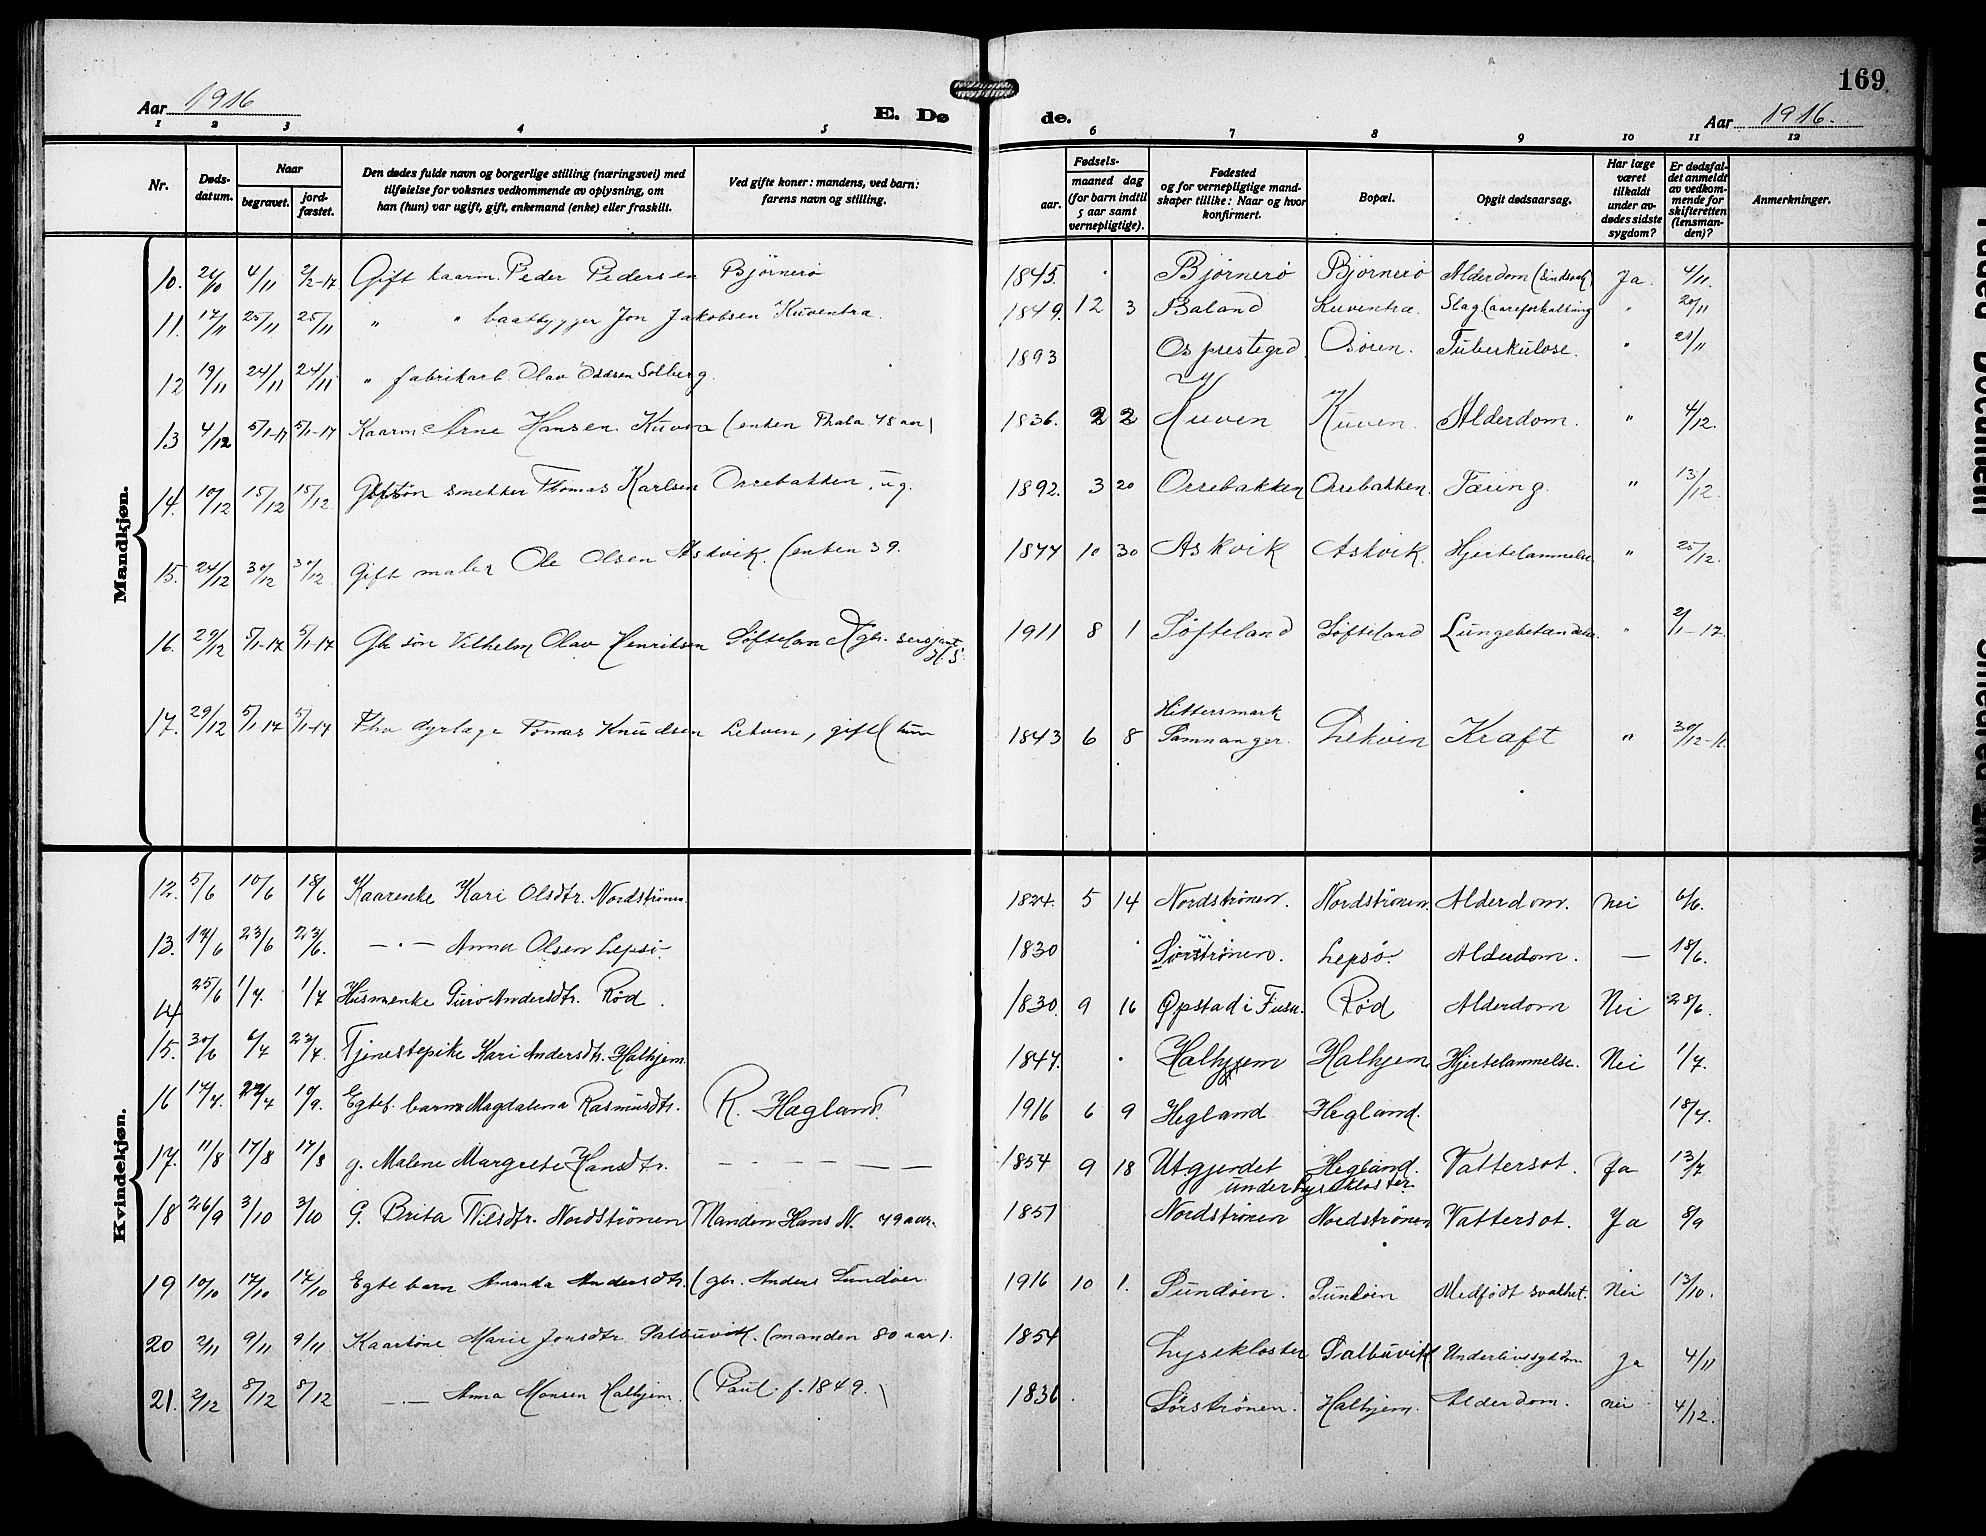 169
Aar 1916
E. Døde.
Aar 1916.
1 2 3 4 5 6 7 8 9 10 11 12
Nr.
Døds-datum.
Naar
begravet.
jord-fæstet.
Den dødes fulde navn og borgerlige stilling (næringsvei) med
tilføielse for voksnes vedkommende av oplysning, om
han (hun) var ugift, gift, enkemand (enke) eller fraskilt.
Ved gifte koner: mandens, ved barn:
farens navn og stilling.
Fødsels-
aar.
maaned dag
(for barn indtil
5 aar samt
vernepligtige).
Fødested
og for vernepligtige mand-
skaper tillike: Naar og hvor
konfirmert.
Bopæl.
Opgit dødsaarsag.
Har læge
været
tilkaldt
under av-
dødes sidste
sygdom?
Er dødsfal-
det anmeldt
av vedkom-
mende for
skifteretten
(lensman-
den)?
Anmerkninger.
Mandkjøn.
10. 26/10 4/11 2/2-17 Gift kaarm. Peder Pedersen Bjørnerö 1845. Bjørnerö Bjørnerö Alderdom Ja. 4/11.
11. 17/11 25/11 25/11 " " baatbygger Jon Jakobsen Kuventra 1849. 12 3 Baland Kuventræ. Slag (aareforkalkning " 20/11
12 19/11 24/11 24/11 " fabrikarb. Olav Solberg. 1893 Os prestegrd Osören. Tuberkulose. " 21/11
13 4/12 5/1-17 5/1-17 Kaarm Arne Hansen Kuven (enken 78 aar) 1836. 2 2 Kuven Kuven. Alderdom. " 4/12.
14. 10/12 15/12 15/12. snekker Thomas Karlsen Orrebakken, ug. 1892. 3 20 Orrebakken Orrebakken. Tæring. " 13/12.
15. 24/12 30/12 30/12. Gift maler Ole Olsen Askvik. (enken 39. 1844 10 30 Askvik Askvik. Hjertelammelse " 25/12.
16. 29/12 5/1-17 5/1-17 Gbr sön Vilhelm Olav Henriksen Söfteland (gbr. sersjant H. S. 1911 8 1 Söfteland Söfteland Lungebetændelse. " 2/1-17.
17. 29/12 5/1-17 5/1-17 Fhv dyrlæge Tomas Knudsen Lekven, gift 1843 6 8 Hittersmark Samnanger. Lekven Kraft " 30/12-16.
Kvindekjøn.
12. 5/6 10/6 18/6 Kaarenke Kari Olsdtr. Nordströnen. 1824. 5 14 Nordströnen. Nordströnen. Alderdom. Nei 6/6.
13. 17/6 23/6 23/6. — " — Anna Olsen Lepsö. 1830 Sörströnen. Lepsö. Alderdom. — 18/6.
14 25/6 1/7. 1/7 Husmenke Guro Andersdtr. Rød. 1830. 9 16 Opstad i Fusa. Rød Alderdom Nei 28/6.
15. 30/6 6/7 23/7. Tjenestepike Kari Andersdtr. Halhjem. 1847. Halhjem Halhjem Hjertelammelse. Nei 1/7.
16 17/7. 22/7 10/9. Egtef. barn Magdalena Rasmusdtr. R. Hægland. 1916 6 9 Hegland Hegland. 18/7.
17. 11/8 17/8 17/8 g. Malene Margrete Hansdtr. — — — — — 1854 9 18 Utgjerdet under Lysekloster Hegland. Vattersot. Ja 13/7
18 26/9 3/10 3/10 G. Brita Nilsdtr. Nordströnen Manden Hans N. 79 aar. 1857 Nordströnen Nordströnen Vattersot. Ja 8/9
19 10/10 17/10 17/10 Egte barn Amanda Andersdtr. (gbr. Anders Sundöen. 1916 10 1. Sundöen. Sundöen Medfødt svakhet. Nei 13/10.
20 2/11 9/11 9/11 Kaarkone Marie Jonsdtr. Salbuvik. (manden 80 aar). 1854 Lysekloster Salbuvik Underlivssygdom Ja 4/11
21. 2/12 8/12 8/12 — " — Anna Monsen Halhjem. (Paul. f. 1849.) 1836 Sörströnen. Halhjem. Alderdom. nei 4/12.